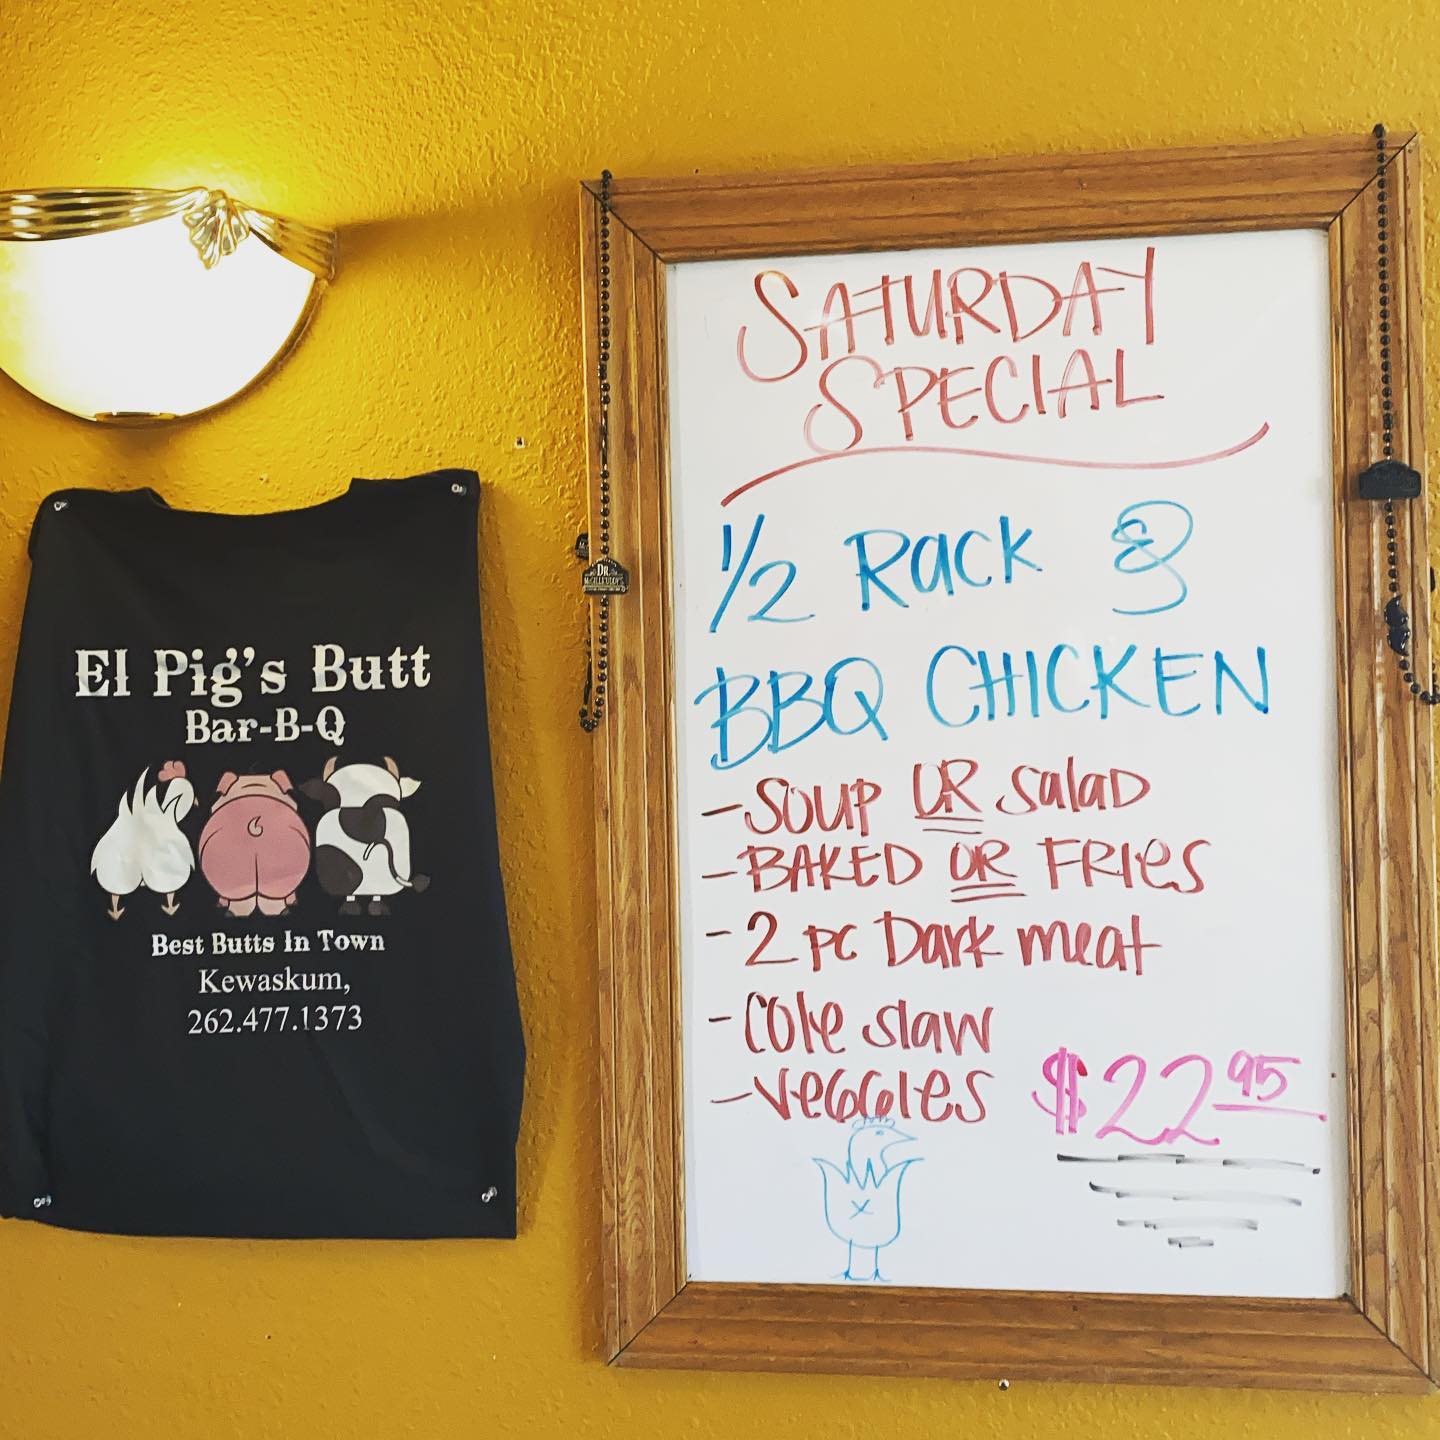 El Pig's Butt
Bar-B-Q
Best Butts In Town
Kewaskum,
262.477.1373
DR.
McGILLICUDDY'S
SATURDAY
SPECIAL
1/2 Rack &
BBQ CHICKEN
- SOUP OR Salad
- BAKED OR FRIES
- 2 pc Dark meat
- Cole slaw
- VEGGIES
$22 95